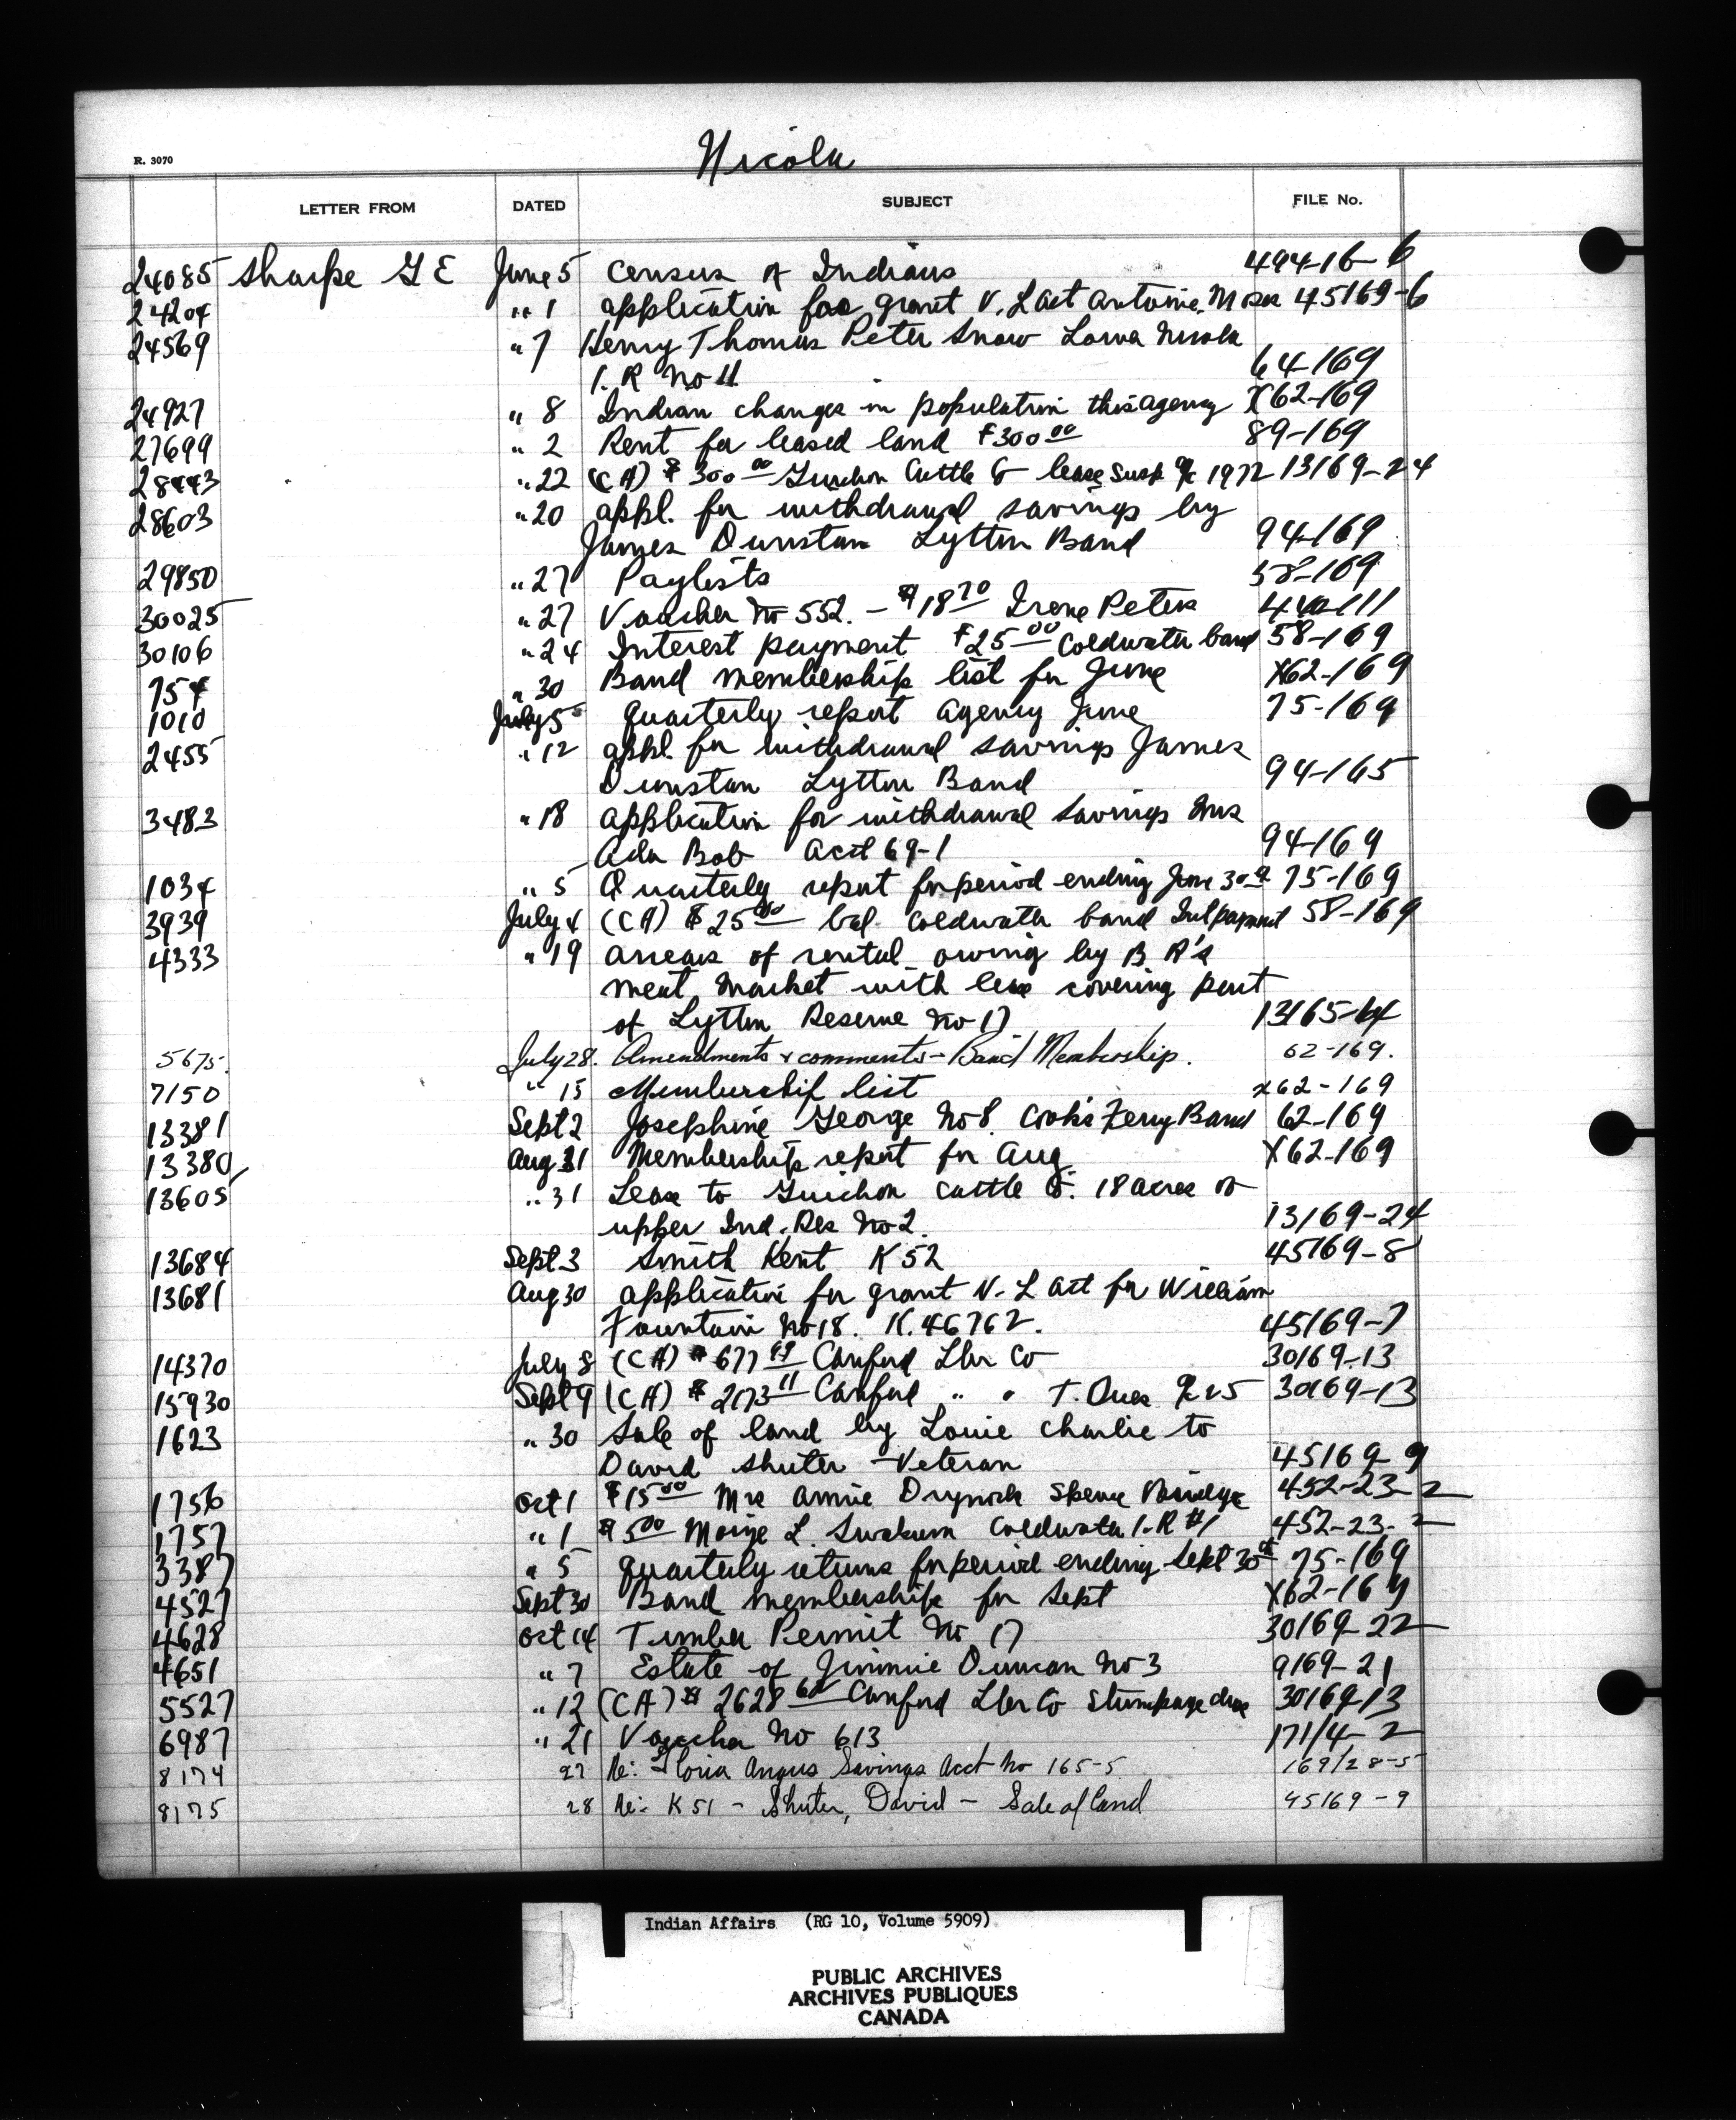 Nicola
R. 3070
LETTER FROM DATED SUBJECT FILE No.
24085 Sharpe G E June 5 Census of Indians 494-16-6
24204 " 1 application for grant V. L Act Antoine Moses 45169-6
24569 " 7 Henry Thomas Peter Snow Lower Nicola
I. R No 11 64-169
24927 " 8 Indian changes in population this agency X62-169
27699 " 2 Rent for leased land $300 00 89-169
28443 " 22 (CA) $300 00 Guichon Cattle Co lease Susp a/c 1972 13169-24
28603 " 20 appl. for withdrawal savings by
James Dunstan Lytton Band 94-169
29850 " 27 Paylists 58-169
30025 " 27 Voucher No 552. - $18 70 Irene Peters
30106 " 24 Interest payment $25 00 Coldwater band 58-169
754 " 30 Band membership list for June X62-169
1010 July 5 Quarterly report agency June 75-169
2455 " 12 appl. for withdrawal savings James
Dunstan Lytton Band 94-165
3483 " 18 application for withdrawal savings Mrs
Ada Bob Acct 69-1 94-169
1034 " 5 Quarterly report for period ending June 30th 75-169
3939 July 4 (CA) $25 00 bal Coldwater band Int payment 58-169
4333 " 19 arrears of rental owing by B R's
meat market with lease covering part
of Lytton Reserve No 17 13165-14
5675. July 28. Amendments & comments - Band Membership. 62-169.
7150 " 15 Membership list x62-169
13381 Sept 2 Josephine George No 8. Cooks Ferry Band 62-169
13380 Aug 31 Membership report for Aug. X62-169
13605 " 31 Lease to Guichon Cattle Co. 18 acres or
upper Ind. Res No 2. 13169-24
13684 Sept 3 Smith Kent K 52 45169-8
13681 Aug 30 application for grant V. L Act for William
Fountain No 18. K. 46762. 45169-7
14370 July 8 (CA) $677 Canford Lbr Co 30169-13
15930 Sept 9 (CA) $2173 11 Canford " " T. Dues 30169-13
1623 " 30 Sale of land by Louie Charlie to
David Shuter - Veteran 45169-9
1756 Oct 1 $15 00 Mrs Annie Drynock Spence Bridge 452-23-2
1757 " 1 $5 00 L. Swakum Coldwater I. R #1 452-23-2
3387 " 5 quarterly returns for period ending Sept 30th 75-169
4527 Sept 30 Band membership for Sept X62-169
4628 Oct 14 Timber Permit No 17 30169-22
4651 " 7 Estate of Jimmie Duncan No 3 9169-21
5527 " 12 (CA) $2628 60 Canford Lbr Co Stumpage dues 30169-13
6987 " 21 Voucher No 613 171/4-2
8174 27 Re: Gloria Angus Savings Acct No 165-5 169/28-5
8175 28 Re: K 51 - Shuter, David - Sale of land 45169-9
Indian Affairs (RG 10, Volume 5909)
PUBLIC ARCHIVES
ARCHIVES PUBLIQUES
CANADA